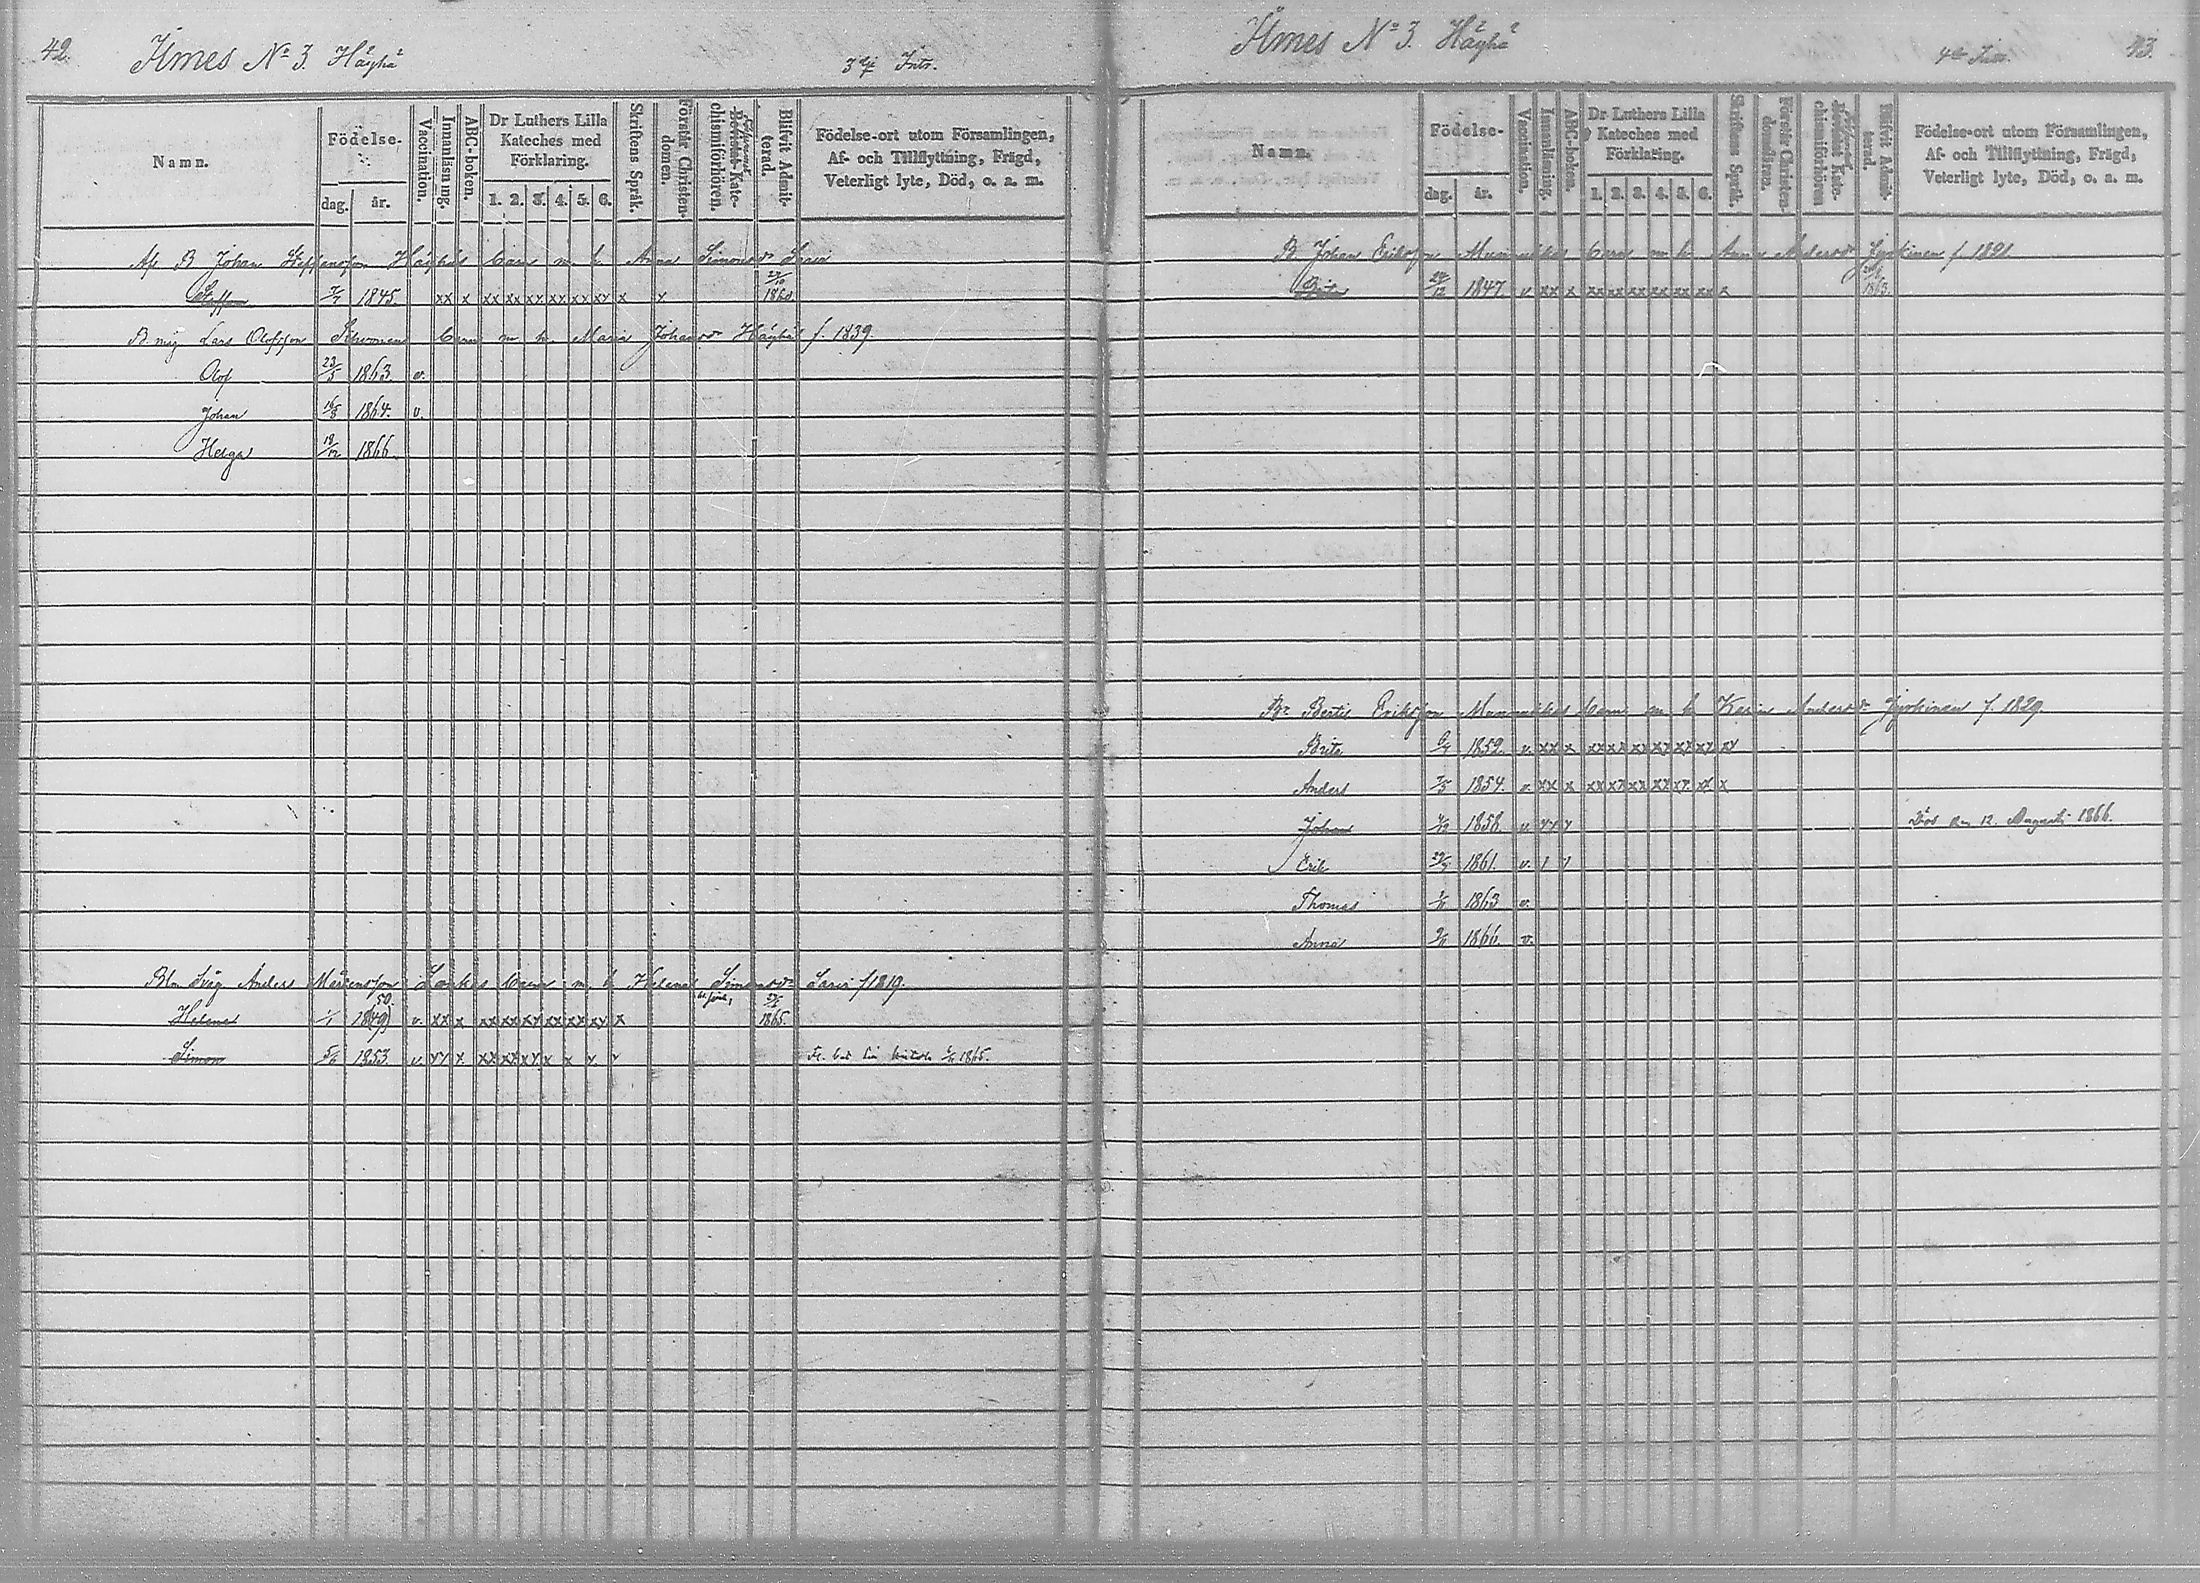 42. Åmes No 3. Häyhä 3dje Intr.
Namn. Födelse- dag. år. Vaccination. Innanläsning. ABC-boken. Dr Luthers Lilla Kateches med Förklaring. 1. 2. 3. 4. 5. 6. Skriftens Språk. Förstår Christendomen. chismiförhören. Blifvit Admitterad. Födelse-ort utom Församlingen, Af- och Tillflyttning, Frägd, Veterligt lyte, Död, o. a. m.
B Johan Häyhäs barn m. h. Anna Simonsdr
Staffan 1845. xx x xx xx xx xx xx xx x x
B. måg Lars Olofsson barn m. h. Maria Johansdr Häyhä f. 1839.
Olof 23/5 1863. v.
Johan 16/8 1864. v.
Helga 18/12 1866.
Svåg. Anders Mårtensson barn m. h. Helena Simonsdr f 1819.
50.
Helena 1/1 18(49) v. xx x xx xx xx xx xx xx x 1865.
Simon 5/6 1853. v xx x xx xx xx x x x x 1865.
Åmes No 3. Häyhä 4de Intr. 43.
Namn. Födelse- dag. år. Vaccination. Innanläsning. ABC-boken. Dr Luthers Lilla Kateches med Förklaring. 1. 2. 3. 4. 5. 6. Skriftens Språk. Förstår Christendomen. chismiförhören Blifvit Admitterad. Födelse-ort utom Församlingen, Af- och Tillflyttning, Frägd, Veterligt lyte, Död, o. a. m.
B Johan Eriksson Munnukkas barn m h Anna Andersdr Jyrkinen f. 1821
Brita 29/12 1847. v xx x xx xx xx xx xx xx x 1863.
Br Bertil Eriksson Munnukkas barn m h Karin Andersdr Jyrkinen f. 1829.
Brita 6/4 1852. v. xx x xx xx xx xx xx xx xx
Anders 7/5 1854. v. xx x xx xx xx xx xx xx x
Johan 1858. v Död den 12. Augusti 1866.
Erik 1861. v.
Thomas 1863 v.
Anna 1866. v.